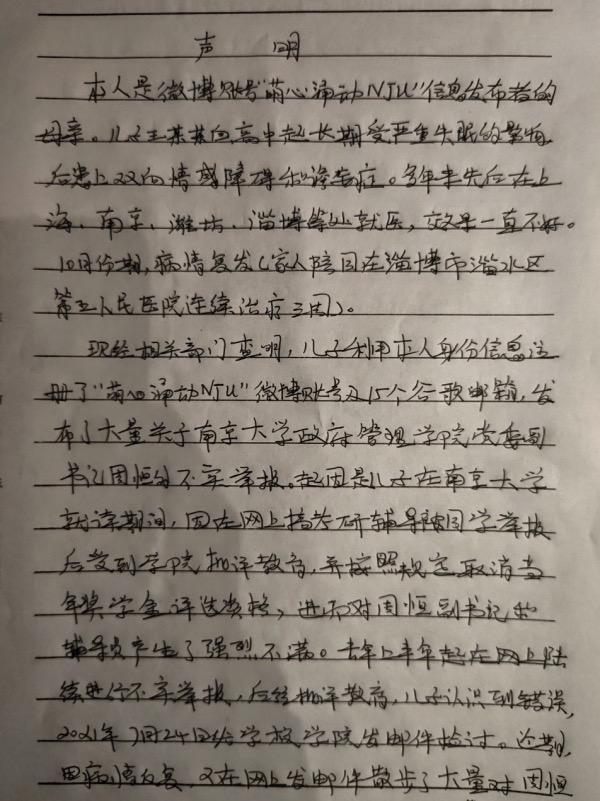 声 明
本人是微博账号"萌心涌动NJU"信息发布者的
母亲。儿子王某某自高中起长期受严重失眠的影响,
后患上双向情感障碍和谵妄症。多年来先后在上
海、南京、潍坊、淄博等处就医,效果一直不好。
10月份期,病情复发(家人陪同在淄博市淄水区
第五人民医院连续治疗三周)。
现经相关部门查明,儿子利用本人身份信息注
册了"萌心涌动NJU"微博账号及15个谷歌邮箱,发
布了大量关于南京大学政府管理学院党委副
书记周恒的不实举报。起因是儿子在南京大学
就读期间,因在网上搞考研辅导被同学举报
后受到学院批评教育,并按照规定取消当
年奖学金评选资格,进而对周恒副书记和
辅导员产生了强烈不满。去年上半年起在网上陆
续进行不实举报,后经批评教育,儿子认识到错误,
2021年7月24日给学校学院发邮件检讨。近期,
因病情反复,又在网上发邮件散步了大量对周恒